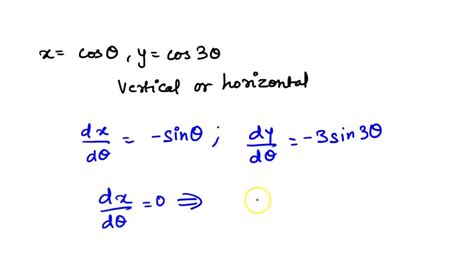 x = cosθ, y = cos 3θ
Vertical or horizontal
dx/dθ = -sinθ ; dy/dθ = -3 sin 3θ
dx/dθ = 0 ⇒